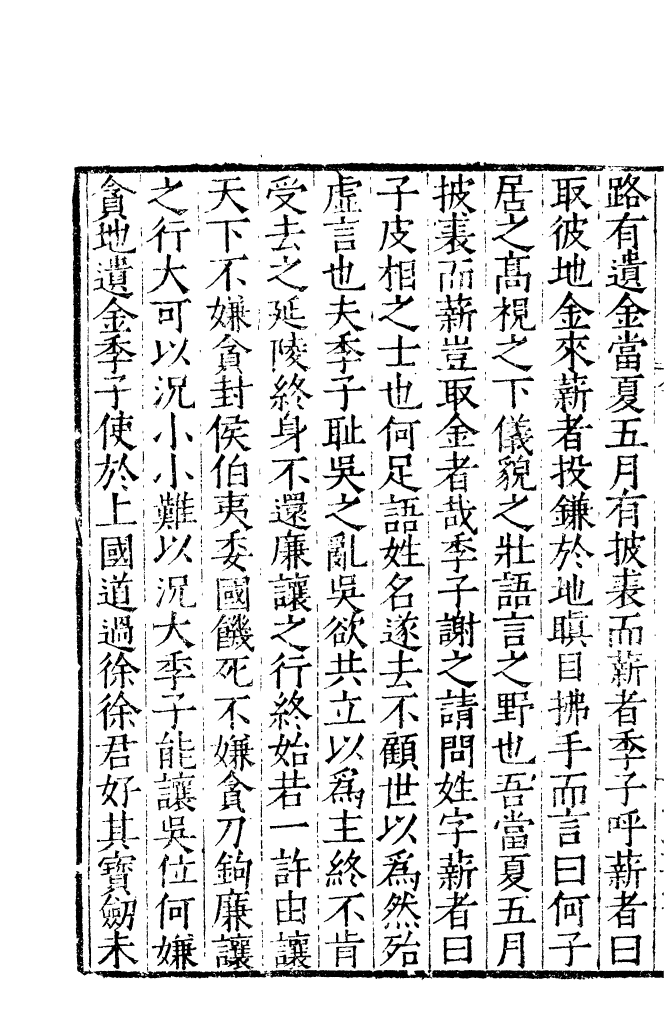 路有遺金當夏五月有披裘而薪者季子呼薪者曰
取彼地金來薪者投鎌於地瞋目拂手而言曰何子
居之髙視之下儀貌之壯語言之野也吾當夏五月
披裘而薪豈取金者哉季子謝之請問姓字薪者曰
子皮相之士也何足語姓名遂去不顧世以爲然殆
虛言也夫季子耻吳之亂吳欲共立以爲主終不肯
受去之延陵終身不還廉讓之行終始若一許由讓
天下不嫌貪封侯伯夷委國饑死不嫌貪刀鉤廉讓
之行大可以況小小難以況大季子能讓吳位何嫌
貪地遺金季子使於上國道過徐徐君好其寶劒未